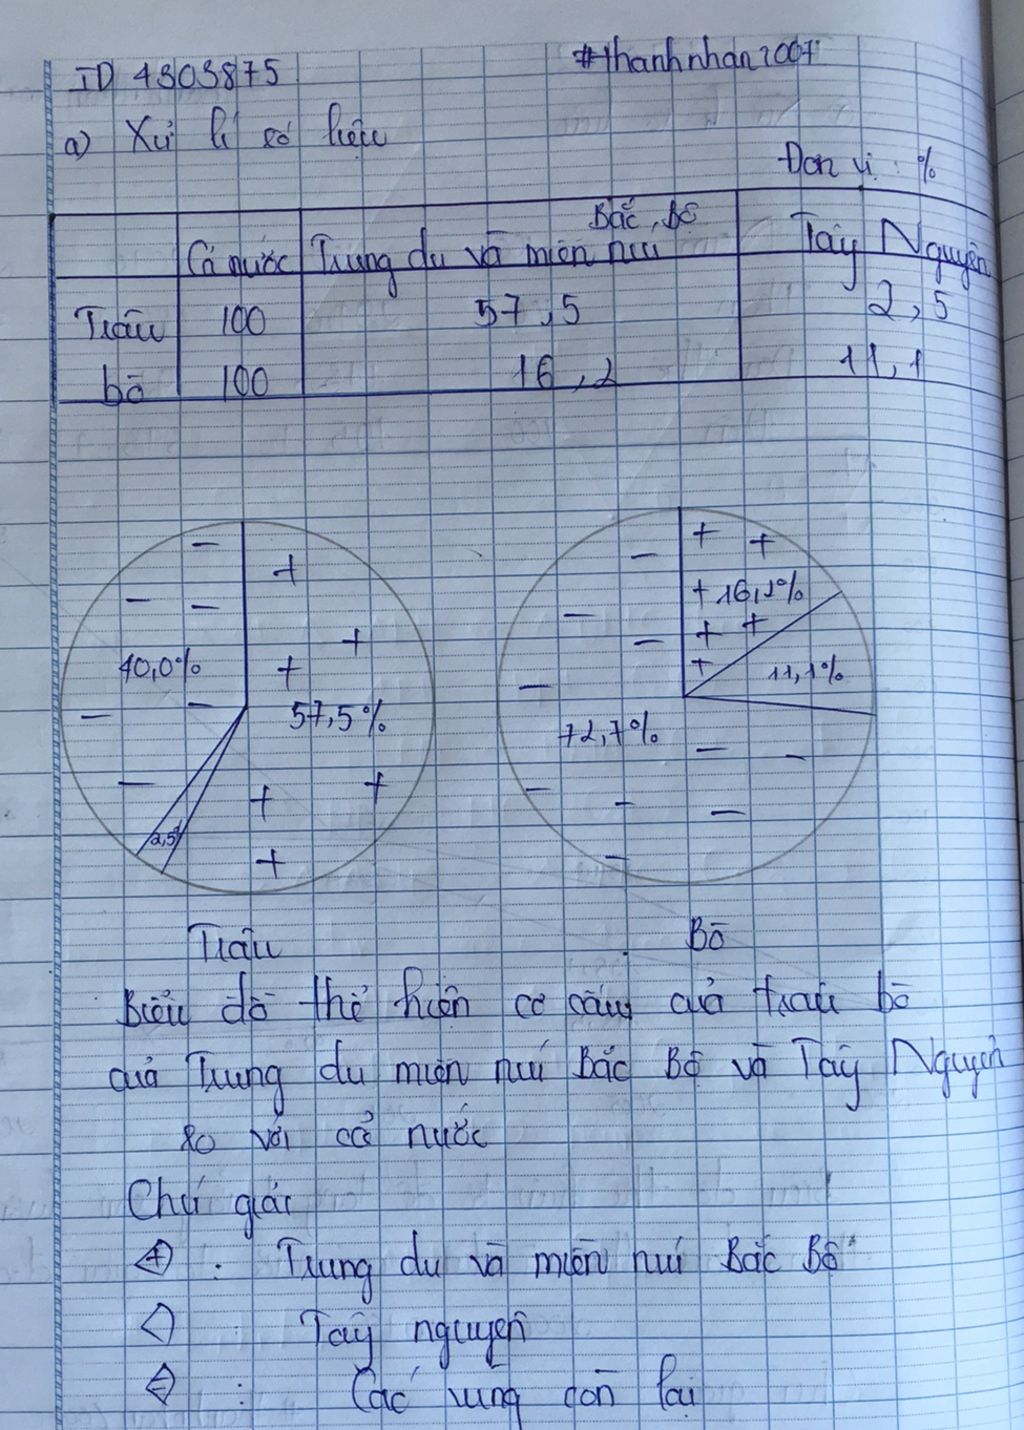 ID 4303875
#thanhnhan2007
a) Xử lí số liệu
Đơn vị : %
Cả nước
Trung du và miền núi Bắc Bộ
Tây Nguyên
Trâu 100 57,5 2,5
bò 100 16,2 11,1
40,0%
57,5%
2,5
16,2%
11,1%
72,7%
Trâu
Bò
Biểu đồ thể hiện cơ cấu của trâu bò
của Trung du miền núi Bắc Bộ và Tây Nguyên
so với cả nước
Chú giải
+ : Trung du và miền núi Bắc Bộ
: Tây nguyên
- : Các vùng còn lại